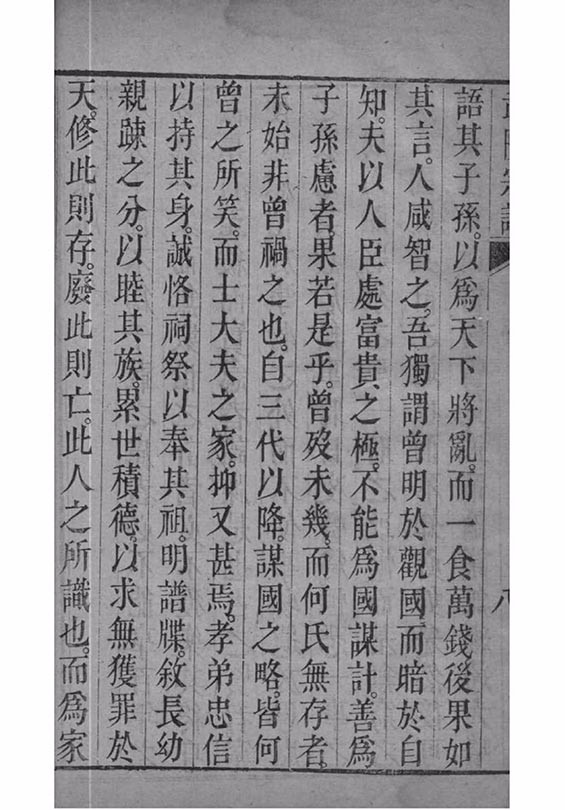 語其子孫。以爲天下將亂。而一食萬錢後果如
其言。人咸智之。吾獨謂曾明於觀國。而暗於自
知。夫以人臣處富貴之極。不能爲國謀計。善爲
子孫慮者。果若是乎。曾歿未幾。而何氏無存者。
未始非曾禍之也。自三代以降。謀國之略。皆何
曾之所笑。而士大夫之家。抑又甚焉。孝弟忠信
以持其身。誠恪祠祭以奉其祖。明譜牒。敘長幼
親疎之分。以睦其族。累世積德。以求無獲罪於
天。修此則存。廢此則亡。此人之所識也。而爲家